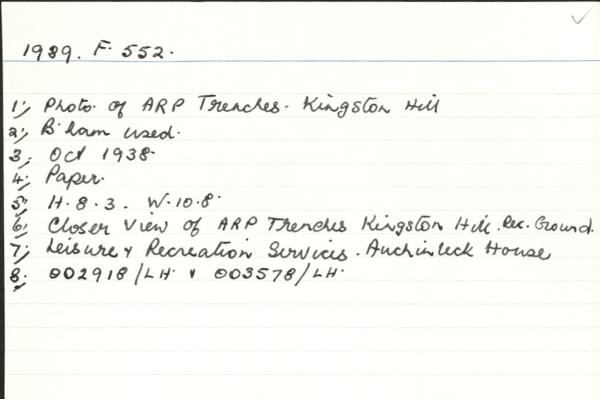 1989. F. 552.
1; Photo. of ARP Trenches. Kingston Hill
2; B'ham used.
3; Oct 1938.
4; Paper.
5; H. 8. 3. W. 10. 8.
6; Closer View of ARP Trenches Kingston Hill. Rec. Ground.
7; Leisure & Recreation Services. Auchinleck House
8; 002918/LH & 003578/LH.